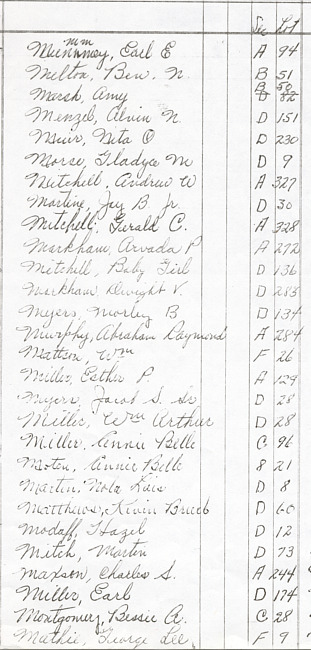 Sec Lot
mm
Munnmey, Earl E A 94
Melton, Ben N. B 51
B 50
Marsh, Amy D 32
Menzel, Alvin N D 151
Muir, Neta O D 230
Morse, Gladys M D 9
Mitchell, Andrew W A 327
Martine, Jay B. Jr. D 30
Mitchell, Gerald C. A 328
Markham, Arvada P A 272
Mitchell, Baby Girl D 136
Markham, Dwight V. D 283
Meyers, Morley B D 134
Murphy, Abraham Raymond A 284
Mattson, Wm F 26
Miller, Esther P. A 129
Myers, Jacob S. Sr D 28
Miller, Wm Arthur D 28
Miller, Annie Belle C 96
Moten, Annie Belle 8 21
Martin, Nola D 8
Matthews, Kevin Bruce D 60
Modaff, Hazel D 12
Mitch, Martin D 73
Maxson, Charles S. A 244
Miller, Earl D 174
Montgomery, Bessie A. C 28
Mathie, George Lee F 9